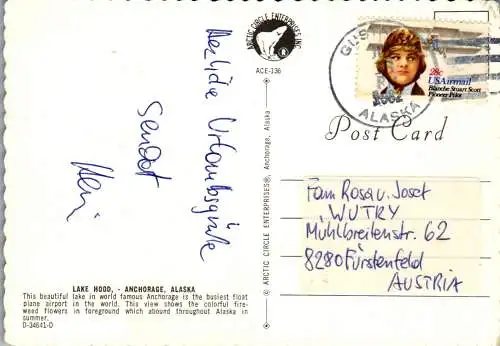 ARCTIC CIRCLE ENTERPRISES INC
ACE-136
GUS
1982
ALASKA
28c
USAirmail
Blanche Stuart Scott
Pioneer Pilot
Post Card
Herzliche Urlaubsgrüße
sendet
Fam Rosa u. Josef
WUTRY
Mühlbreitenstr. 62
8280 Fürstenfeld
AUSTRIA
© ARCTIC CIRCLE ENTERPRISES®, Anchorage, Alaska
LAKE HOOD, - ANCHORAGE, ALASKA
This beautiful lake in world famous Anchorage is the busiest float
plane airport in the world. This view shows the colorful fire-
weed flowers in foreground which abound throughout Alaska in
summer.
D-34641-D